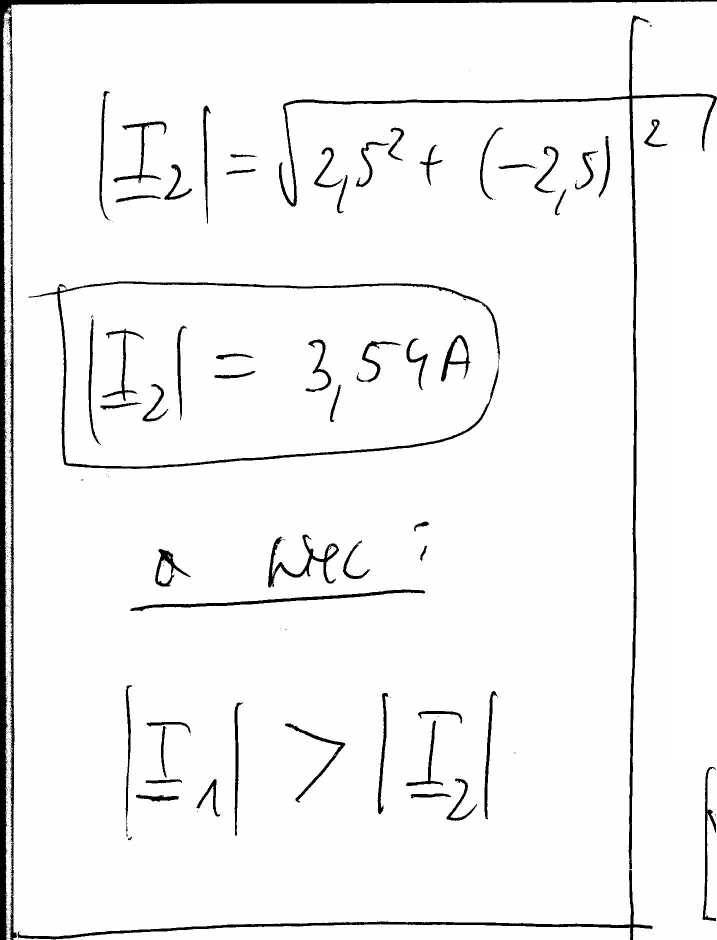 |I₂| = √2,5² + (-2,5)²
|I₂| = 3,54A
a więc :
|I₁| > |I₂|